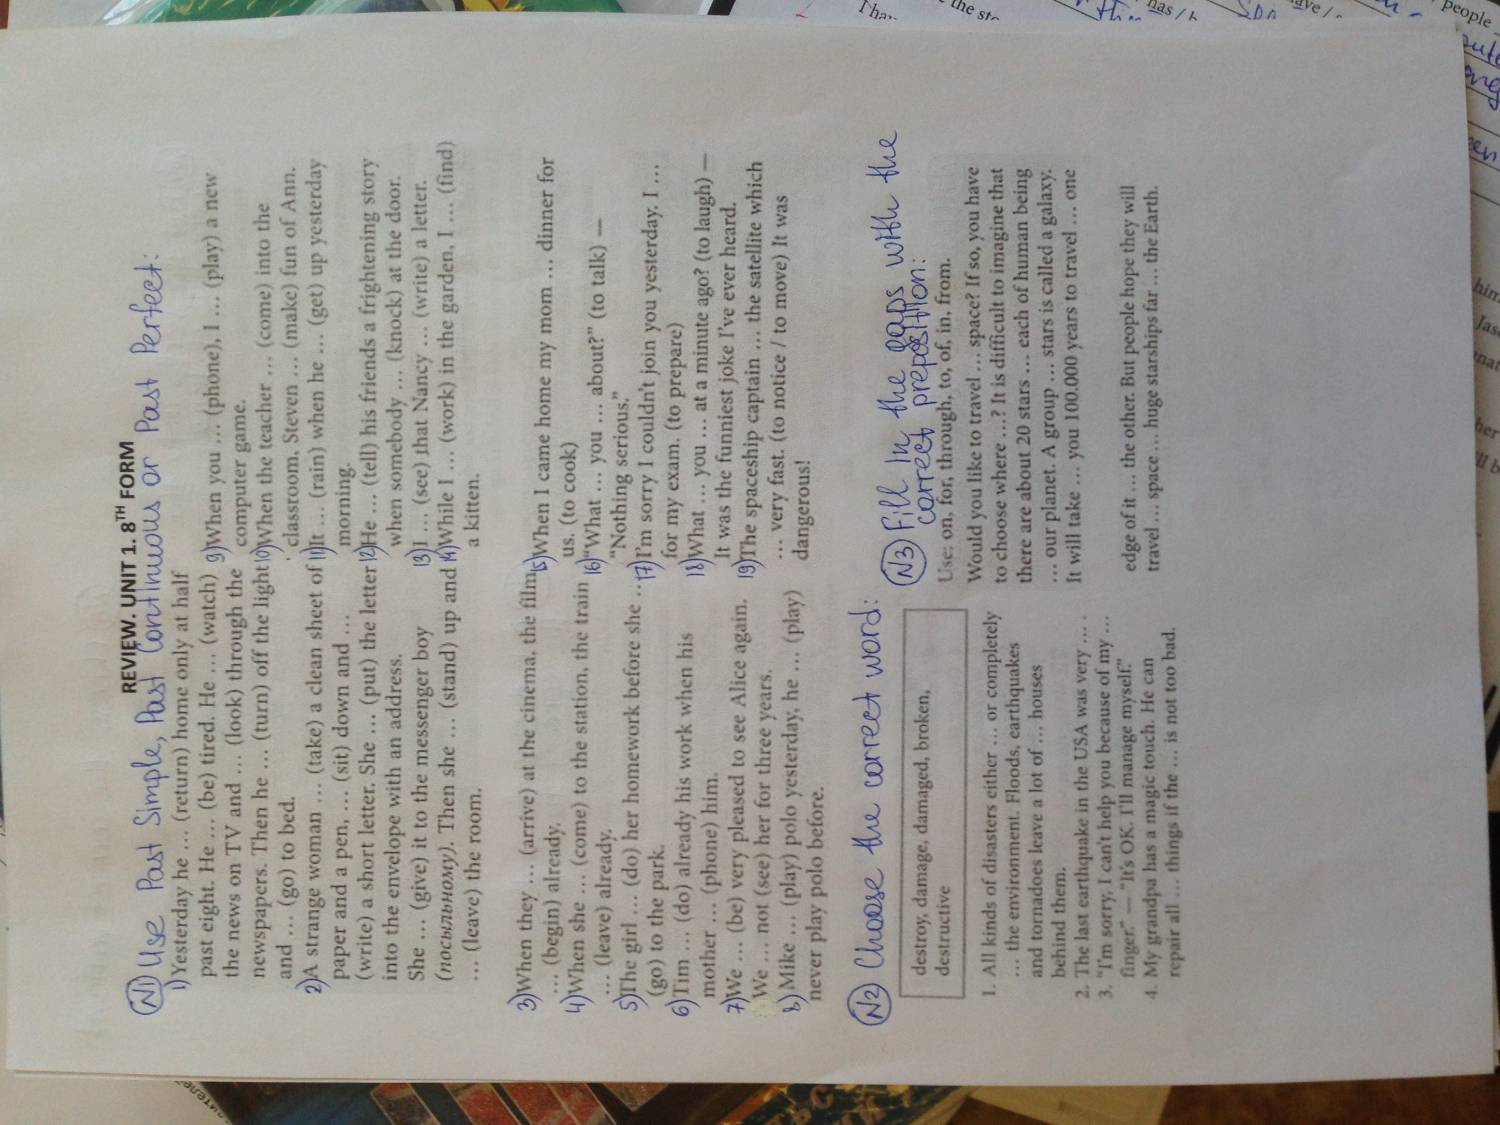 REVIEW. UNIT 1. 8TH FORM
N1 Use Past Simple, Past Continuous or Past Perfect:
1) Yesterday he … (return) home only at half
past eight. He … (be) tired. He … (watch)
the news on TV and … (look) through the
newspapers. Then he … (turn) off the light
and … (go) to bed.
2) A strange woman … (take) a clean sheet of
paper and a pen, … (sit) down and …
(write) a short letter. She … (put) the letter
into the envelope with an address.
She … (give) it to the messenger boy
(посыльному). Then she … (stand) up and
… (leave) the room.
9) When you … (phone), I … (play) a new
computer game.
10) When the teacher … (come) into the
classroom, Steven … (make) fun of Ann.
11) It … (rain) when he … (get) up yesterday
morning.
12) He … (tell) his friends a frightening story
when somebody … (knock) at the door.
13) I … (see) that Nancy … (write) a letter.
14) While I … (work) in the garden, I … (find)
a kitten.
3) When they … (arrive) at the cinema, the film
… (begin) already.
4) When she … (come) to the station, the train
… (leave) already.
5) The girl … (do) her homework before she …
(go) to the park.
6) Tim … (do) already his work when his
mother … (phone) him.
7) We … (be) very pleased to see Alice again.
We … not (see) her for three years.
8) Mike … (play) polo yesterday, he … (play)
never play polo before.
15) When I came home my mom … dinner for
us. (to cook)
16) "What … you … about?" (to talk) —
"Nothing serious."
17) I'm sorry I couldn't join you yesterday. I …
for my exam. (to prepare)
18) What … you … at a minute ago? (to laugh) —
It was the funniest joke I've ever heard.
19) The spaceship captain … the satellite which
… very fast. (to notice / to move) It was
dangerous!
N2 Choose the correct word:
destroy, damage, damaged, broken,
destructive
1. All kinds of disasters either … or completely
… the environment. Floods, earthquakes
and tornadoes leave a lot of … houses
behind them.
2. The last earthquake in the USA was very … .
3. "I'm sorry, I can't help you because of my …
finger." — "It's OK. I'll manage myself."
4. My grandpa has a magic touch. He can
repair all … things if the … is not too bad.
N3 Fill in the gaps with the
correct preposition:
Use: on, for, through, to, of, in, from.
Would you like to travel … space? If so, you have
to choose where …? It is difficult to imagine that
there are about 20 stars … each of human being
… our planet. A group … stars is called a galaxy.
It will take … you 100.000 years to travel … one
edge of it … the other. But people hope they will
travel … space … huge starships far … the Earth.
the sto
has / h
people
him
her